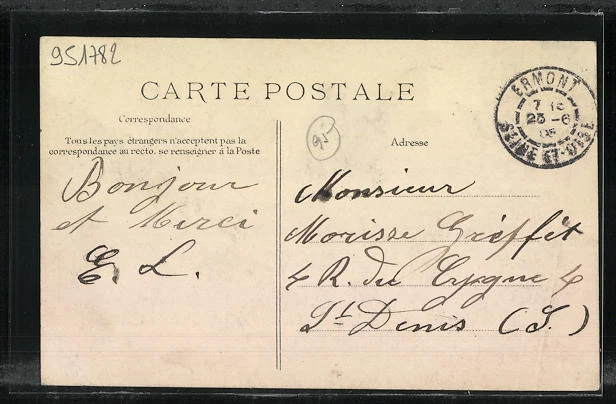 951782
CARTE POSTALE
ERMONT
7 15
23 -6
08
SEINE-ET-OISE
Correspondance
Tous les pays étrangers n'acceptent pas la
correspondance au recto, se renseigner à la Poste
95
Adresse
Bonjour
et Merci
E. L.
Monsieur
Morisse Gréffét
4 R. du Cygne 4
St Denis (S.)